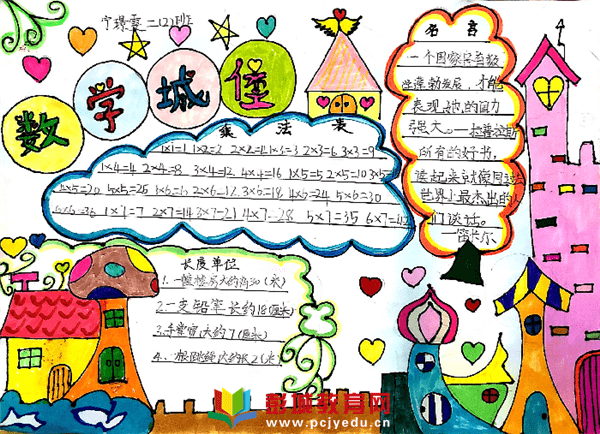 宁璟雯 二(2)班
数学城堡
乘法表
1×1=1 1×2=2 2×2=4 1×3=3 2×3=6 3×3=9
1×4=4 2×4=8 3×4=12 4×4=16 1×5=5 2×5=10 3×5
4×5=20 5×5=25 1×6=6 2×6=12 3×6=18 4×6=24 5×6=30
6×6=36 1×7=7 2×7=14 3×7=21 4×7=28 5×7=35 6×7=42
名言
一个国家只有数
学蓬勃发展，才能
表现她的国力
强大。—拉普拉斯
所有的好书，
读起来就像同过去
世界上最杰出的人
们谈话。
—笛卡尔
长度单位
1.一幢楼房大约高30(米)
2.一支铅笔长约18(厘米)
3.手掌宽大约7(厘米)
4.一根跳绳大约长2(米)
彭城教育网
www.pcjyedu.cn